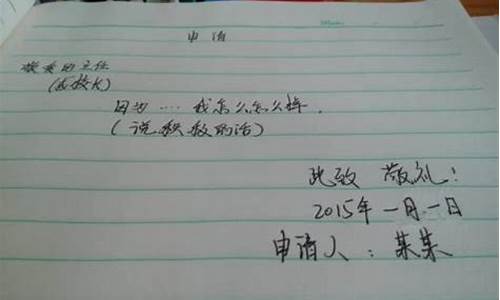 申请
敬爱的主任
(或校长)
因为…我怎么怎么样.
(说积极的话)
此致 敬礼!
2015年一月一日
申请人:某某